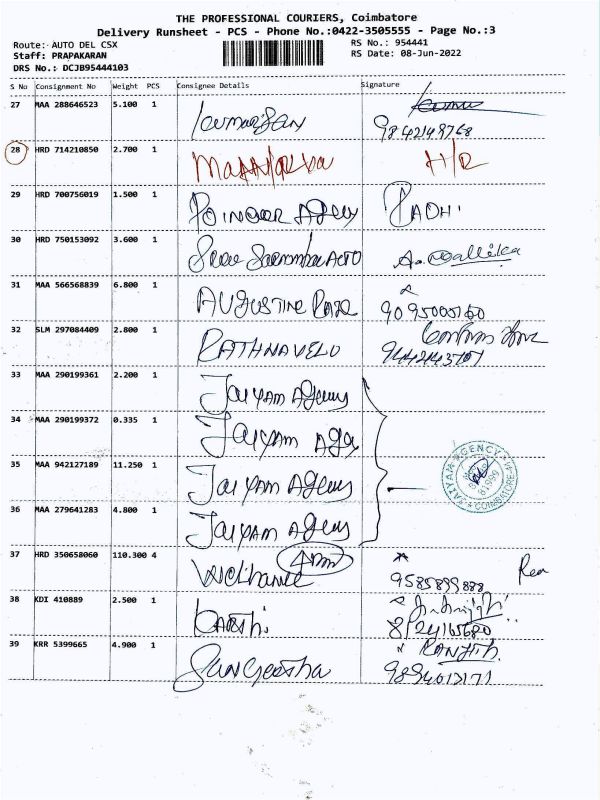 THE PROFESSIONAL COURIERS, Coimbatore
Delivery Runsheet - PCS - Phone No.:0422-3505555 - Page No.:3
Route: AUTO DEL CSX RS No.: 954441
Staff: PRAPAKARAN RS Date: 08-Jun-2022
DRS No.: DCJB95444103
S No Consignment No Weight PCS Consignee Details Signature
27 MAA 288646523 5.100 1
9842149768
28 HRD 714210850 2.700 1 H/R
29 HRD 700756019 1.500 1 Agency PADHI
30 HRD 750153092 3.600 1 AUTO
31 MAA 566568839 6.800 1 AUGUSTINE
32 SLM 297084409 2.800 1 RATHNAVELU
33 MAA 290199361 2.200 1 Jaiyam Agency
34 MAA 290199372 0.335 1 Jaiyam Agy
35 MAA 942127189 11.250 1 Jaiyam Agency
SATYAM AGENCY COIMBATORE
36 MAA 279641283 4.800 1 Jaiyam Agency
37 HRD 350658060 110.300 4
9585899888
38 KDI 410889 2.500 1 Karthi
8124165680
39 KRR 5399665 4.900 1 Sangeetha RANJITH
9894013171